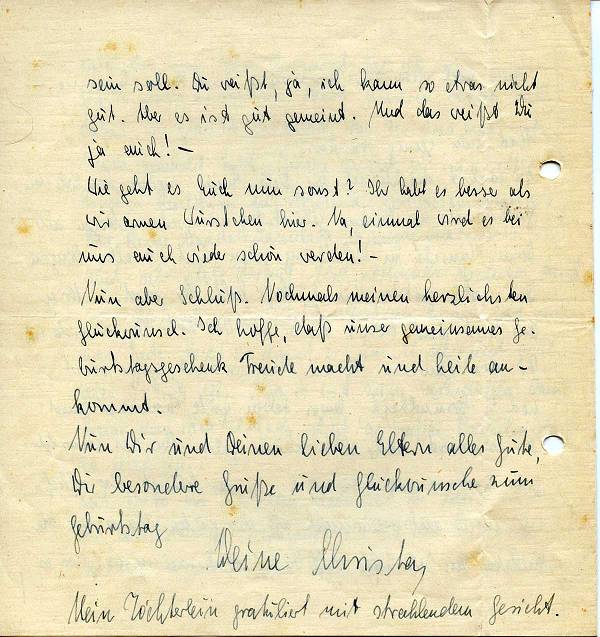 sein soll. Du weißt, ja, ich kann so etwas nicht
gut. Aber es ist gut gemeint. Und das weißt Du
ja auch! –
Wie geht es Euch nun sonst? Ihr habt es besser als
wir armen Würstchen hier. Na, einmal wird es bei
uns auch wieder schön werden! –
Nun aber Schluß. Nochmals meinen herzlichsten
Glückwunsch. Ich hoffe, daß unser gemeinsames Ge-
burtstagsgeschenk Freude macht und heile an-
kommt.
Nun Dir und Deinen lieben Eltern alles Gute,
Dir besondere Grüße und Glückwünsche zum
Geburtstag
Deine
Mein Töchterlein gratuliert mit strahlendem Gesicht.